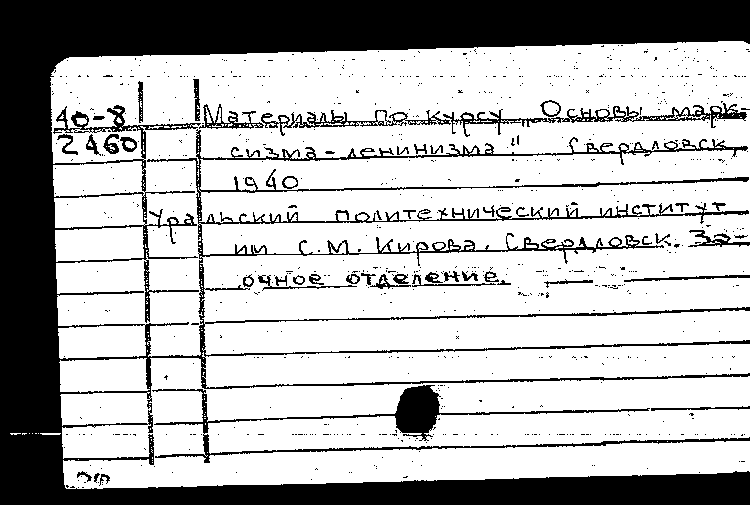 40-8 Материалы по курсу „Основы марк-
2460 сизма-ленинизма". Свердловск,
1940
Уральский политехнический институт
им С.М. Кирова. Свердловск. За-
очное отделение.